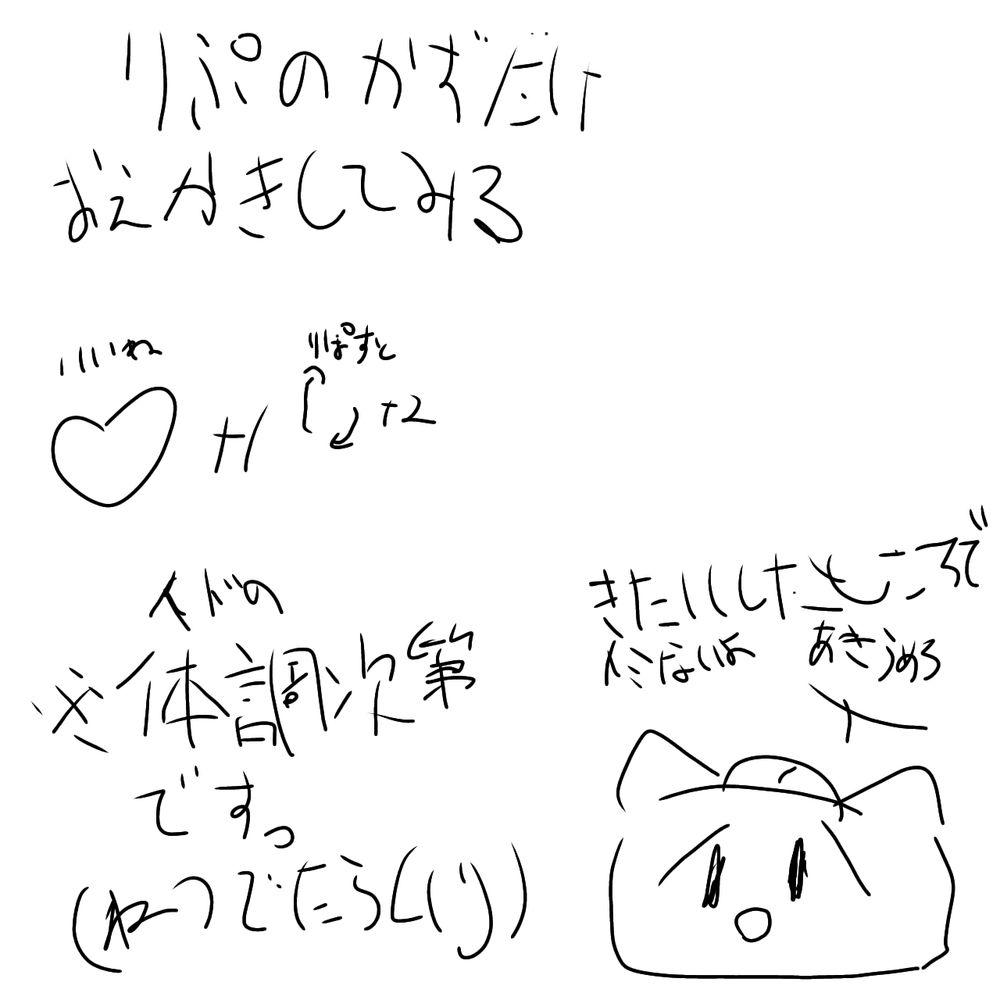 りぷのかずだけ
おえかきしてみる
いいね
りぽすと
+1
+2
イドの
※体調次第
ですっ
(ねつでたらくり)
きたいしたところで
イミないよ
あきらめろ